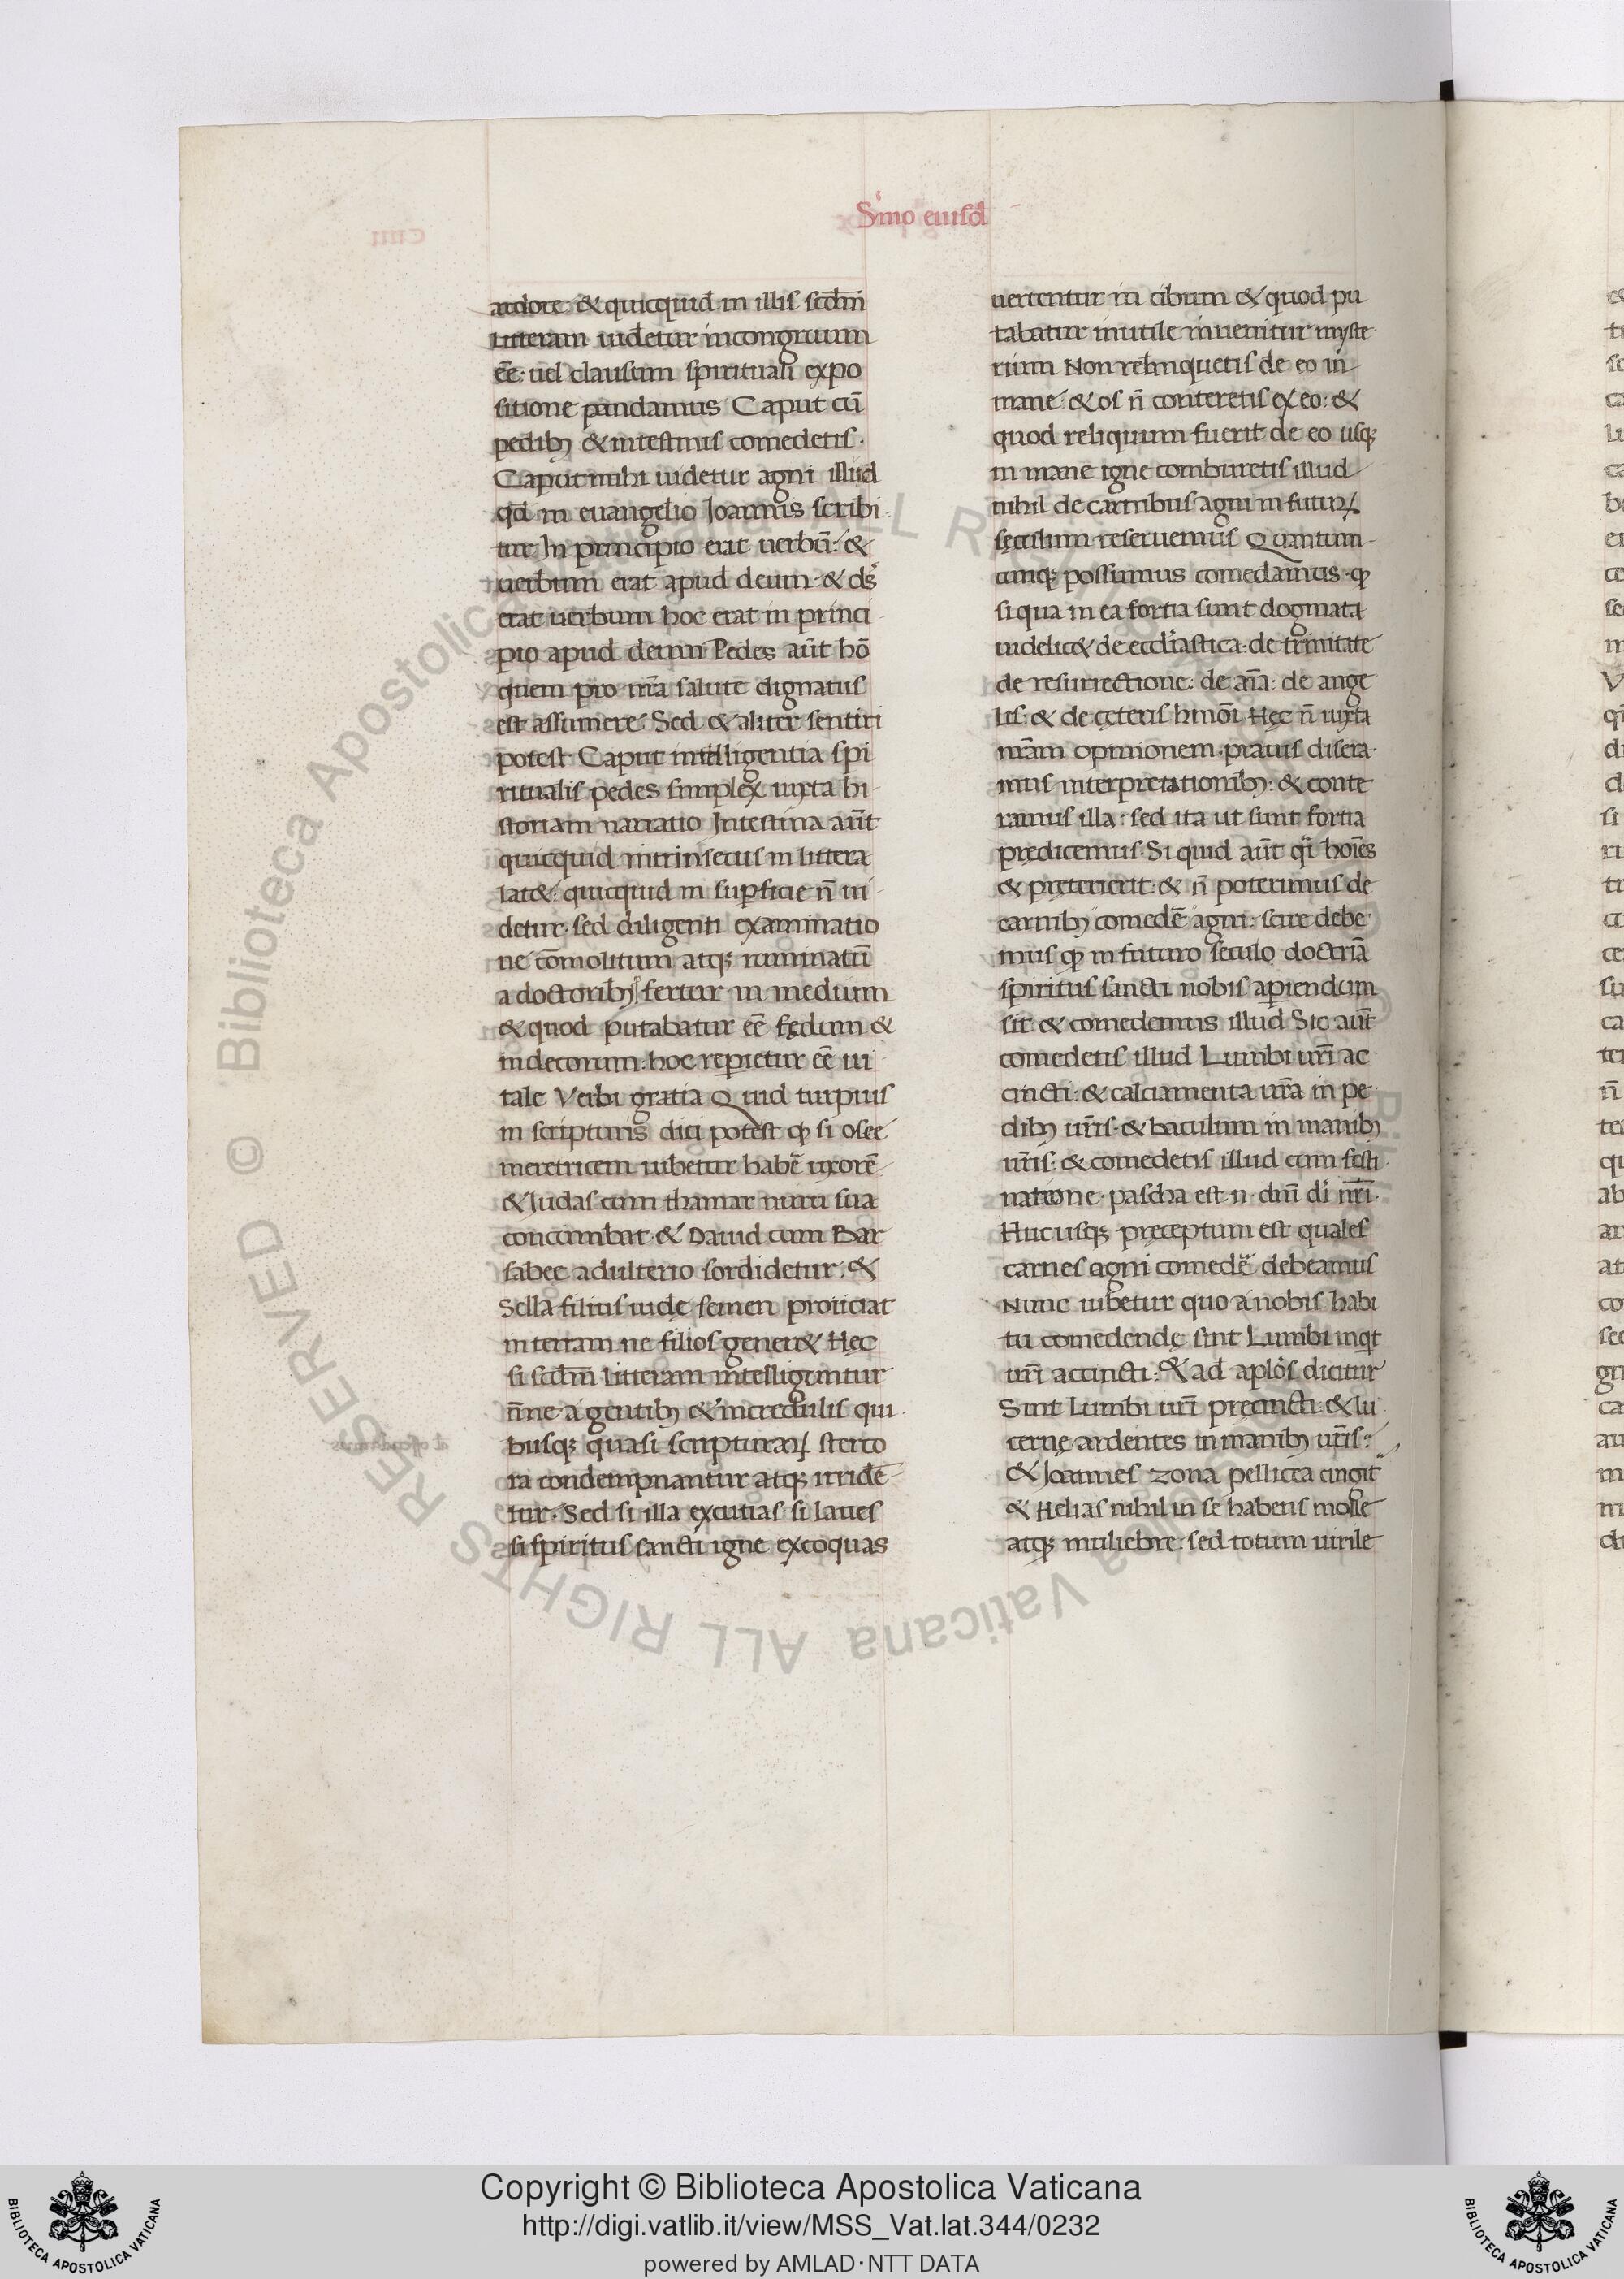 Smo eiusd
ardore & quicquid in illis scdm
litteram uidetur incongruum
eē: uel clausum spirituali expo
sitione pandamus Caput cū
pedibꝫ & intestinis comedetis.
Caput mihi uidetur agni illud
qd in euangelio Joannis scribi
tur In principio erat uerbū: &
uerbum erat apud deum & ds
erat uerbum hoc erat in princi
pio apud deum Pedes aūt hō
quem pro nrā salute dignatus
est assumere Sed & aliter sentiri
potest Caput intelligentia spi
ritualis pedes simplex iuxta hi
storiam narratio Intestina aūt
quicquid intrinsecus in littera
lat&: quicquid in suꝑficie n̄ ui
detur. sed diligenti examinatio
ne cōmolitum atqꝫ ruminatū
a doctoribꝫ fertur in medium
& quod putabatur eē fędum &
indecorum: hoc repietur eē ui
tale Verbi gratia Quid turpius
in scripturis dici potest ꝙ si osee
meretricem iubetur habē uxorē
& Iudas cum thamar nuru sua
concumbat. & Dauid cum Bar
sabee adulterio sordidetur. &
Sella filius iudę semen proiiciat
in terram ne filios gener& Hęc
si scdm litteram intelliguntur
n̄ne a gentibꝫ & incredulis qui
busqꝫ quasi scripturaꝝ sterco
ra condempnantur atqꝫ irridē
tur. Sed si illa excutias si laues
si spiritus sancti igne excoquas
uertentur in cibum & quod pu
tabatur inutile inuenitur myste
rium Non relinquetis de eo in
mane & os n̄ conteretis ex eo: &
quod reliquum fuerit de eo usqꝫ
in mane igne comburetis illud
nihil de carnibus agni in futuꝝ
sęculum reseruemus Quantum
cunqꝫ possumus comedamus. ꝙ
si qua in ea fortia sunt dogmata
uidelic& de ecclīastica. de trinitate
de resurrectione: de aīa: de ange
lis: & de cęteris hmōi Hęc n̄ iuxta
nr̄am opinionem. prauis disera
mus interpretationibꝫ: & conte
ramus illa: sed ita ut sunt fortia
prędicemus. Si quid aūt qī hoīes
& pręterierit & n̄ poterimus de
carnibꝫ comedē agni: scire debe
mus ꝙ in futuro seculo doctrīa
spiritus sancti nobis apiendum
sit & comedemus illud Sic aūt
comedetis illud Lumbi urī ac
cincti: & calciamenta ur̄a in pe
dibꝫ ur̄is. & baculum in manibꝫ
ur̄is. & comedetis illud cum festi
natione. pascha est. n. dnī di nr̄i.
Hucusqꝫ pręceptum est quales
carnes agni comedē debeamus
Nunc iubetur quo a nobis habi
tu comedendę sint Lumbi inqt
urī accincti: & ad aplōs dicitur
Sint Lumbi urī pręcincti: & lu
cernę ardentes in manibꝫ ur̄is:
& Joannes zona pellicea cingit
& Helias nihil in se habens molle
atqꝫ muliebre: sed totum uirile
Copyright © Biblioteca Apostolica Vaticana
http://digi.vatlib.it/view/MSS_Vat.lat.344/0232
powered by AMLAD·NTT DATA
BIBLIOTECA APOSTOLICA VATICANA
BIBLIOTECA APOSTOLICA VATICANA
© Biblioteca Apostolica Vaticana ALL RIGHTS RESERVED